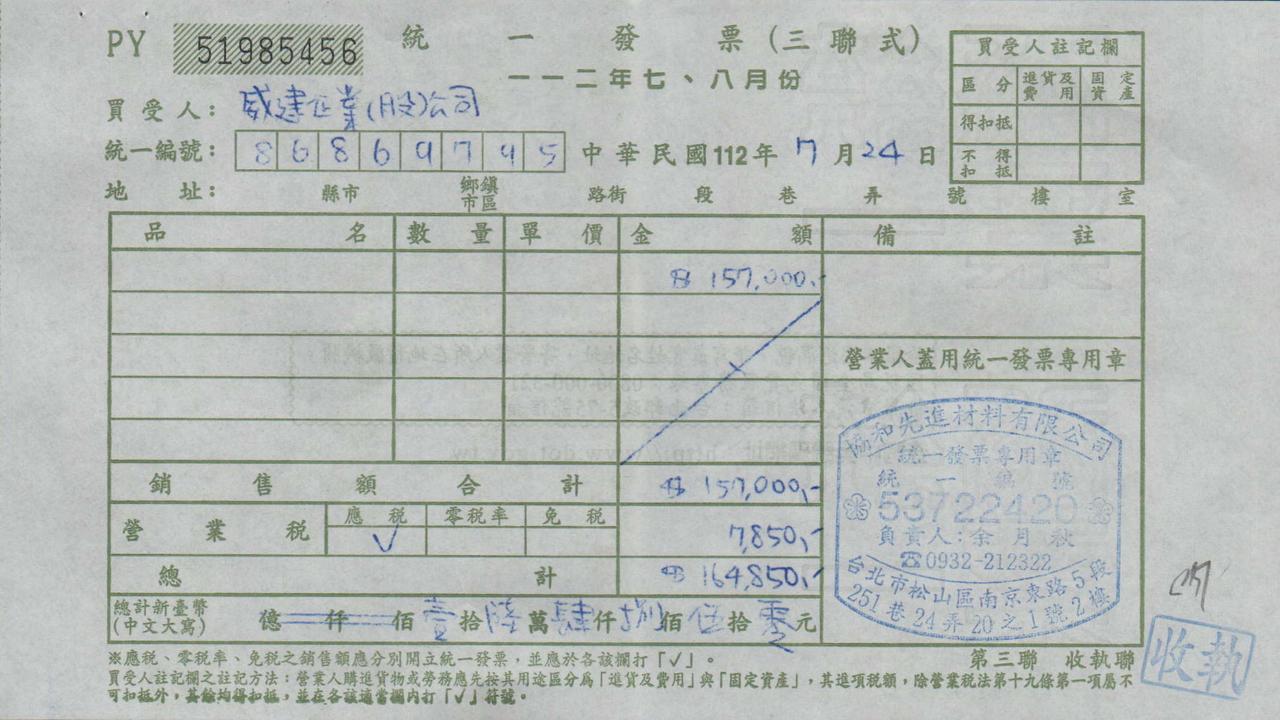 PY 51985456 統一發票(三聯式)
一一二年七、八月份
買受人註記欄
區分 進貨及費用 固定資產
得扣抵
不得扣抵
買受人: 威建企業(股)公司
統一編號: 86869795 中華民國112年7月24日
地址: 縣市 鄉鎮市區 路街 段 巷 弄 號 樓 室
品名 數量 單價 金額 備註
$ 157,000.-
營業人蓋用統一發票專用章
銷售額合計 $ 157,000,-
營業稅 應稅 零稅率 免稅 7,850,-
✓
總計 $ 164,850,-
總計新臺幣(中文大寫) 億 仟 佰壹拾陸萬肆仟捌佰伍拾零元
協和先進材料有限公司
統一發票專用章
統一編號
53722420
負責人:余月秋
☎0932-212322
台北市松山區南京東路5段
251巷24弄20之1號2樓
收執
※應稅、零稅率、免稅之銷售額應分別開立統一發票,並應於各該欄打「✓」。
第三聯 收執聯
買受人註記欄之註記方法:營業人購進貨物或勞務應先按其用途區分為「進貨及費用」與「固定資產」,其進項稅額,除營業稅法第十九條第一項屬不
可扣抵外,其餘均得扣抵,並在各該適當欄內打「✓」符號。